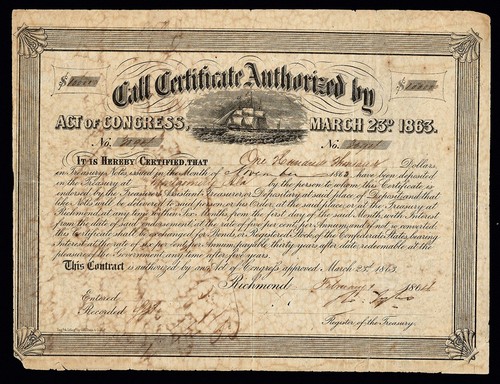 Call Certificate Authorized by
ACT OF CONGRESS, MARCH 23D. 1863.
No. No.
IT IS HEREBY CERTIFIED, THAT One Hundred Thousand Dollars,
in Treasury Notes, issued in the Month of November 1863, have been deposited
in the Treasury at by the person to whom this Certificate is
endorsed by the Treasurer, Assistant Treasurer, or Depositary at said place of Deposit, and that
like Notes will be delivered to said person, or his Order, at the said place, or at the Treasury at
Richmond at any time within Six Months from the first day of the said Month, with Interest
from the date of said endorsement, at the rate of five per cent. per Annum, and if not so converted,
this Certificate shall be exchanged for Bonds or Registered Stock of the Confederate States, bearing
Interest at the rate of six per cent. per Annum, payable thirty years after date, redeemable at the
pleasure of the Government, any time after five years.
This Contract is authorized by an Act of Congress approved March 23d. 1863.
Richmond February 1864
Entered
Recorded
Register of the Treasury.